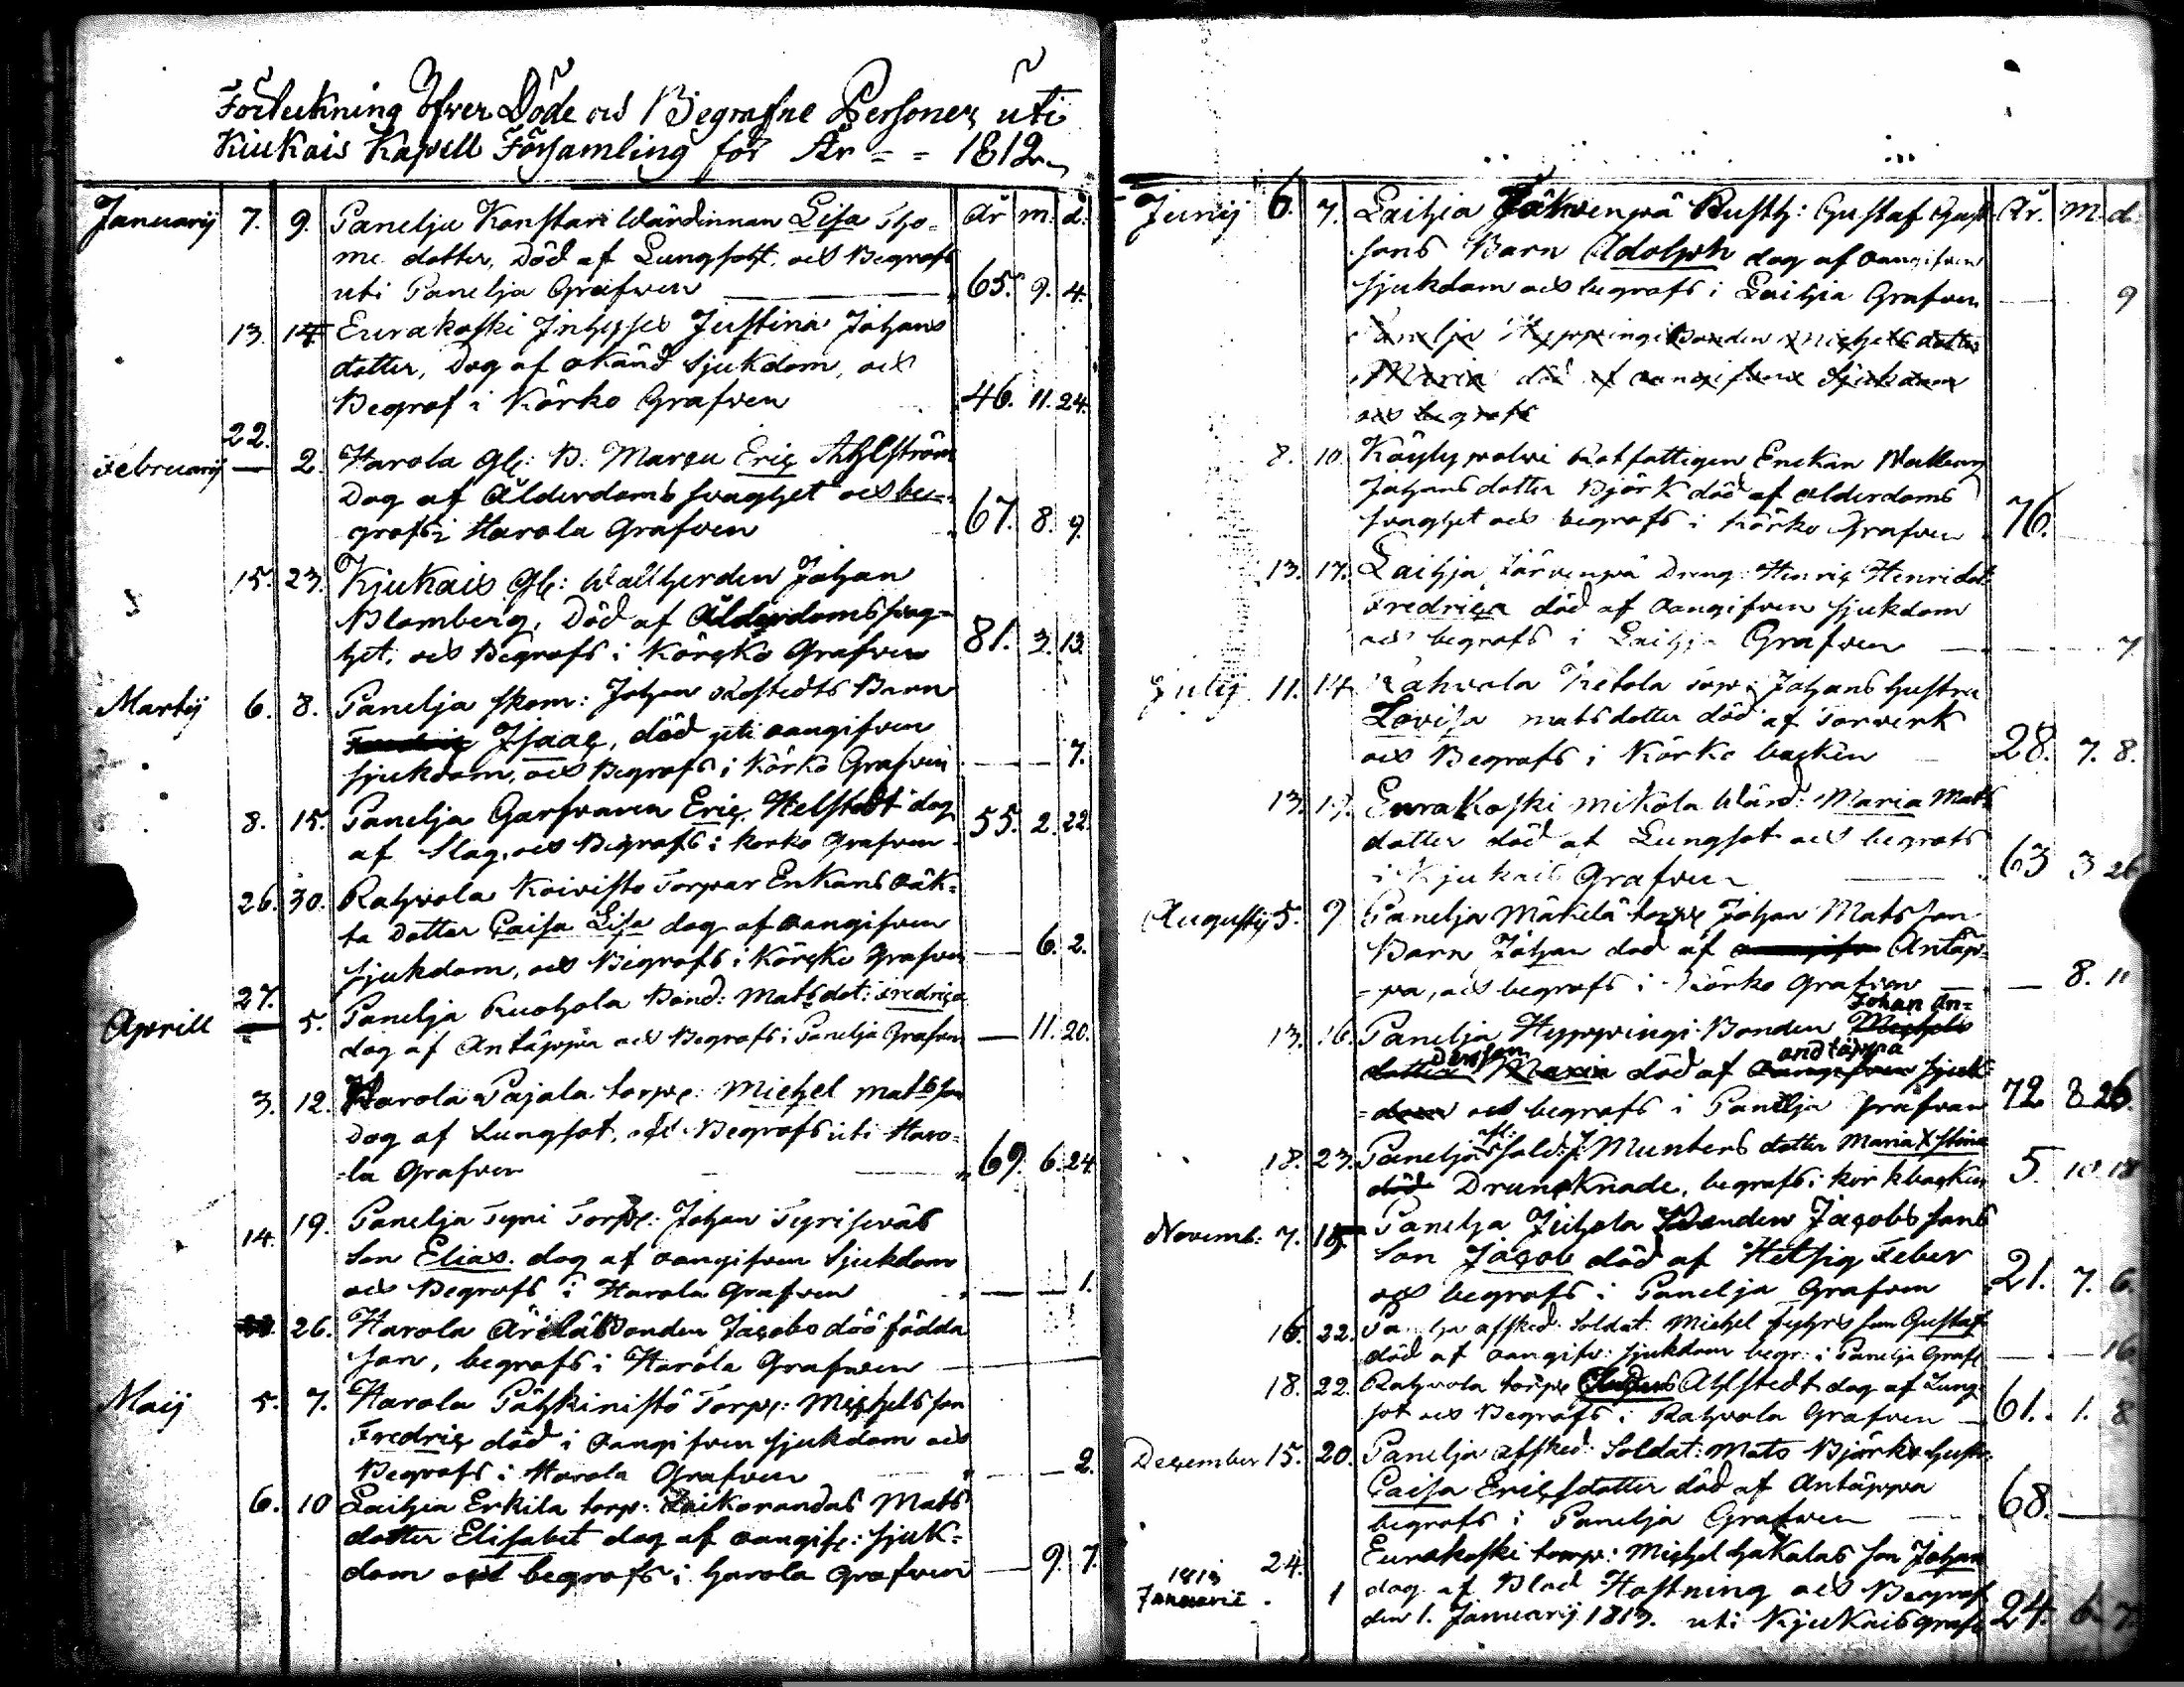 Förteckning Öfver Döde och Begrafne Personer uti
Kiukais Kapell Församling för År = = 1812
Januarij 7. 9. Panelju Konstari Wärdinnan Lisa Tho= År m. d.
me dotter, Död af Lungsott, och Begrafs
uti Panelja Grafwen 65. 9. 4.
13. 14 Eurakoski Inhyses Justina Johans
dotter, Dog af okänd sjukdom, och
Begraf i Körko Grafven 46. 11. 24.
22.
Februarij — 2. Harola Gl: B: Marcu Eric Ahlström
Dog af Ålderdoms svaghet och be=
grafs i Harola Grafven 67. 8. 9.
15. 23. Kjukais Gl: Wallherden Johan
Blomberg, Död af Ålderdoms svag=
het, och Begrafs i Körcko Grafven 81. 3. 13.
Martij 6. 8. Panelja skom: Johan Barn
Isaac, död uti oangifven
sjukdom, och Begrafs i Körko Grafven 7.
8. 15. Panelja Garfvaren Eric Helstedt dog
af Slag, och Begrafs i korko Grafven 55. 2. 22.
26. 30. Rahvola Koivisto Torpar Enkans oäk=
ta Dotter Caisa Lisa dog af oangifven
sjukdom, och Begrafs i Körcko Grafven — 6. 2.
27.
Aprill — 5. Panelja Ruohola Bond: Mats dot: Fredrica
dog af Antäppa och Begrafs i Panelja Grafven — 11. 20.
3. 12. Harola Pajala torp: Michel mats son
Dog af Lungsot, och Begrafs uti Haro=
=la Grafven 69. 6. 24.
14. 19. Panelja Tyni Torp: Johan
Son Elias dog af oangifven sjukdom
och Begrafs i Harola Grafven 1.
26. Harola Ärilä Bonden Jacobs döö födda
son, begrafs i Harola Grafwen
Maij 5. 7. Harola Pähkinistö Torp: Michels son
Fredric död i oangifven sjukdom och
Begrafs i Harola Grafven 2.
6. 10 Laihia Erkila torp: Mats
dotter Elisabet dog af oangif: sjuk=
dom och begrafs i harola Grafven — 9. 7.
Junij 6. 7. Laihia Rusth: Gustaf Gust År. M. d.
sons Barn Adolph dog af oangifven
sjukdom och begrafs i Laihia Grafven 9
Panelja Hyppingi Bonden Michels dotter
Maria död af oangifven sjukdom
och begrafs
8. 10. Köylypolvi Enckan
Johansdotter Björk död af alderdoms
svaghet och begrafs i Körko Grafven 76.
13. 17. Laihja Järvenpä Dreng: Henric Henri dot
Fredrica död af oangifven sjukdom
och begrafs i Laihja Grafven 7
Julij 11. 14 Rahvola Ketola torp: Johans hustru
Lovisa matsdotter död af Torverk
och Begrafs i Körko backen 28. 7. 8.
13. 19. Eurakoski mikola Wärd: Maria Mats
dotter död af Lungsot och begrafs
i Kjukais Grafven 63 3 26
Augustij 5. 9 Panelja Mäkelä torp Johan Mats son
Barn Johan död af Antäp=
=pa, och begrafs i Körko Grafven — 8. 11
Johan An=
13. 16. Panelja Hyppingi Bonden Michels
dersson andtäppa
dotter Maria död af oangifven sjuk=
=dom och begrafs i Panelja Grafvan 72 8 26.
af:
18. 23. Panelja Sold: J: Munters dotter Maria Xstina
död Druncknade, begrafs i körkbacken 5. 10 18
Novemb: 7. 15. Panelja Juhola Bonden Jacobs sons
Son Jacob död af Hetsig Feber
och begrafs i Panelja Grafven 21. 7. 6.
16. 22. Panelja afsked: Soldat: Michel son Gustaf
död af oangif: sjukdom begr: i Panelja Graf 16
18. 22. Rahvola torp Ahlstedt dog af Lung
sot och Begrafs i Rahvola Grafven 61. 1. 8
December 15. 20. Panelja afsked: Soldat: Mats Björks hust:
Caisa Ericsdotter död af Antäppa
begrafs i Panelja Grafven 68.
24. Eurakoski torp: Michel hakalas son Johan
1813
Januarii 1 dog af Blod Hostning och Begraf
den 1. Januarij 1813. uti Kjukais graf 24. 6 7.